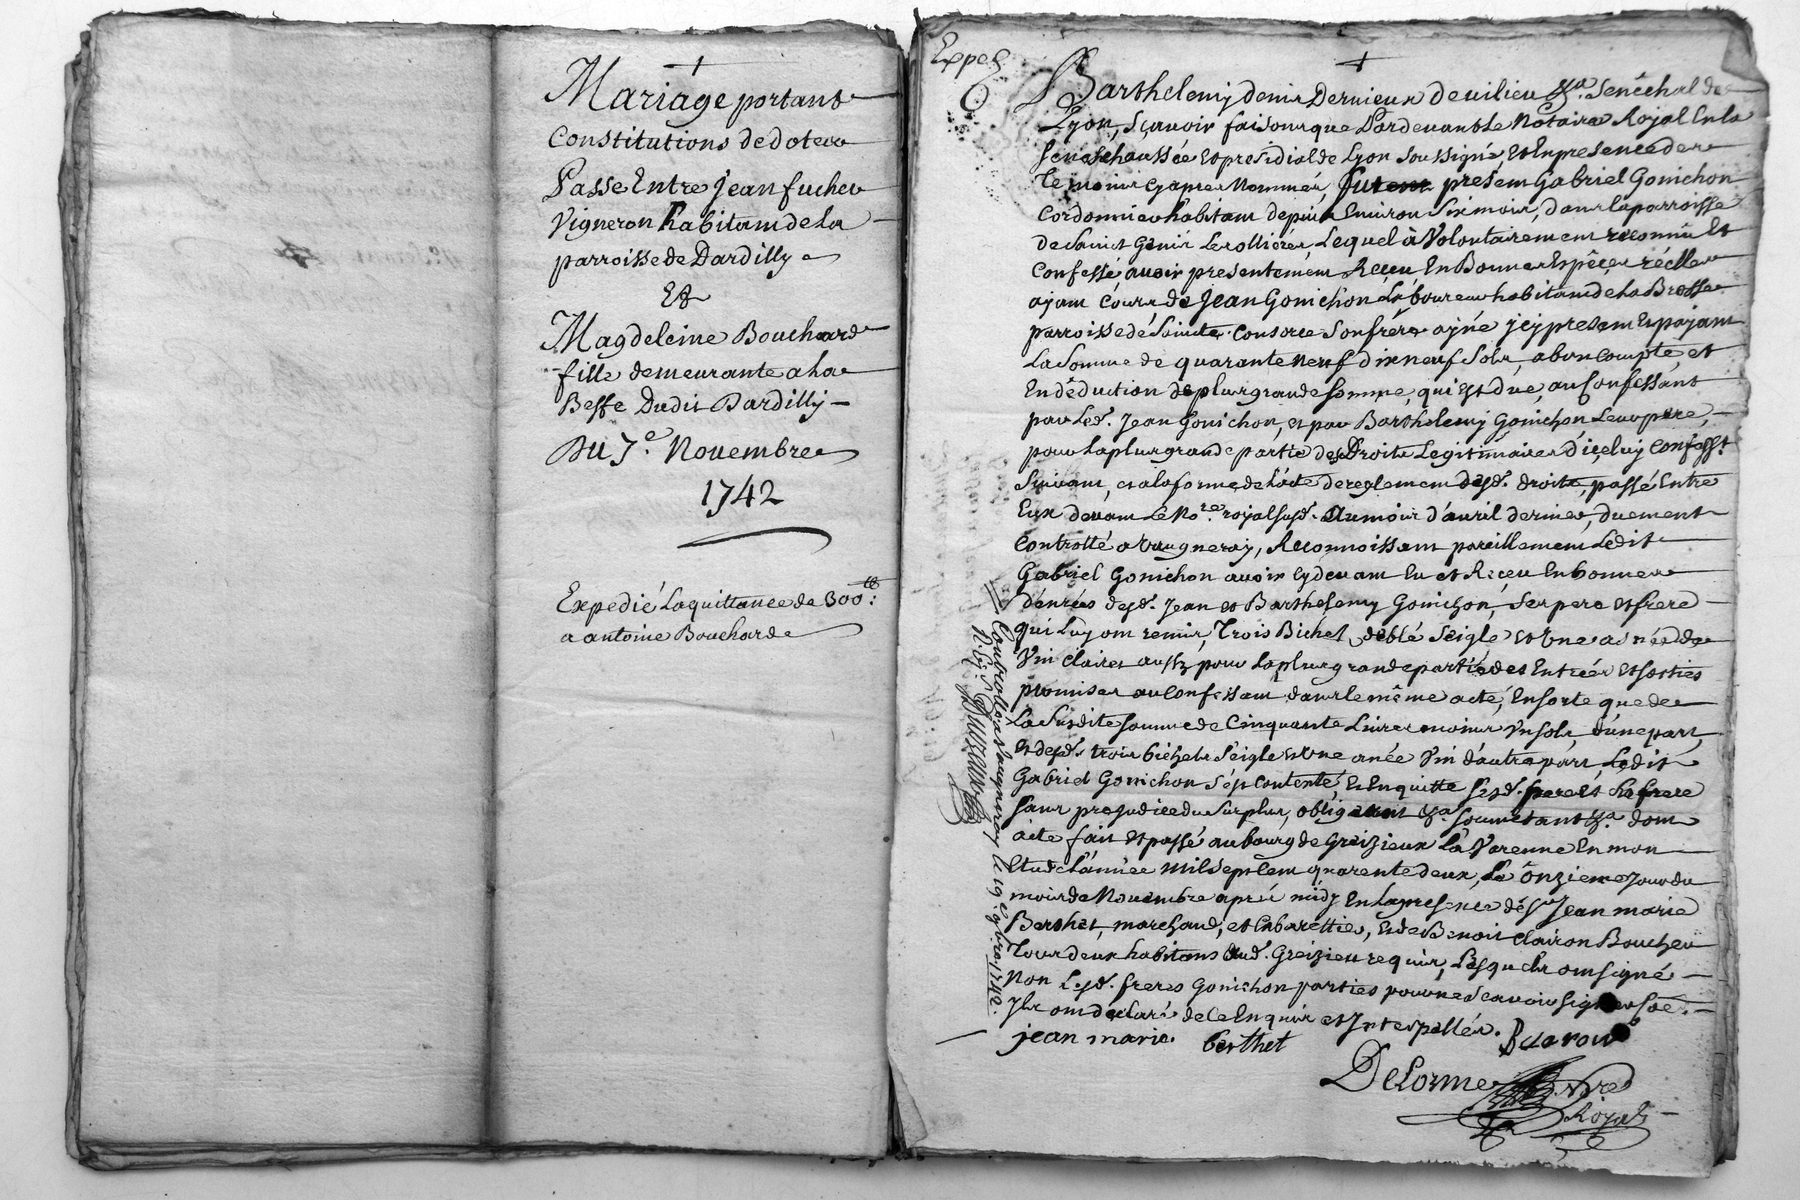 Mariage portant
Constitutions de dotes
Passé Entre Jean fucher
Vigneron habitant de La
parroisse de Dardilly
Et
Magdeleine Bouchard
fille demeurante a la
Besse Dudit Dardilly
Du 7e. Novembre
1742
Expedié La quittance de 300tt:
a antoine Bouchard
Exped
Barthelemy denis Dervieux de vilieu &a. Senêchal de
Lyon, sçavoir faisons que Pardevant Le Notaire Royal En la
senechaussée et presidial de Lyon soussigné et En presence des
temoins cyapres Nommés, furent present Gabriel Gonichon
Cordonnier habitant depuis Environ Six mois, dans la parroisse
de Saint Genis Lesollieres, Lequel à Volontairement reconnû Et
Confessé avoir presentement Reçeu En Bonnes Espêces réelles
ayant Cours de Jean Gonichon Laboureur habitant de la Brosse
parroisse de Sainte Consorce Son frere ayné jcy present Et payant
La Somme de quarante neuf dix neuf Sols, a bon Compte et
En dêduction de plus grande Somme, qui Est düe, au Confessant
par Led. Jean Gonichon, et par Barthelemy Gonichon Leur pere,
pour la plus grande partie des Droits Legitimaires d'iceluy Confesst.
Suivant, et a la forme de L'acte de reglement desd. droits, passé Entre
Eux devant Le Nore. royal susd. Au mois d'avril dernier, duement
Controllé a Vaugneray, Reconnoissant pareillement Ledit
Gabriel Gonichon avoir cy devant Eu et Reçeu En bonnes
denrées desd. Jean et Barthelemy Gonichon, Ses pere et frere
qui Luy ont remis, Trois Bichets de blé Seigle, et Une asnée de
Vin Clairet aussy pour la plus grande partie des Entrées et sorties
promises au Confessant dans le même acte, En sorte que de
La Susdite somme de Cinquante Livres moins Un sols, d'une part,
Et desd. trois bichets Seigle et Une anée Vin d'autre part, Ledit
Gabriel Gonichon S'est Contenté, Et En quitte Sesd. pere Et frere
Sans prejudice du Surplus, obligeant &a. soumetant &a. dont
acte fait et passé au bourg de Greizieux la Varenne En mon
Etude L'année mil sept cent quarente deux, Le Onzieme Jour du
mois de Novembre aprés midy En la presence de Sr. Jean marie
Berthet, marchand, et Cabarettier, Et de Benoit Clairon Boucher
Tous deux habitans dud. Greizieu requis, Lesquels ont signé
Non Lesd. freres Gonichon parties pour ne sçavoir signer
Ils ont declaré de ce Enquis et Interpellés.
jean marie berthet
DeLorme Nore
Royal
Controllé a Vaugneray le 19e 9bre 1742.